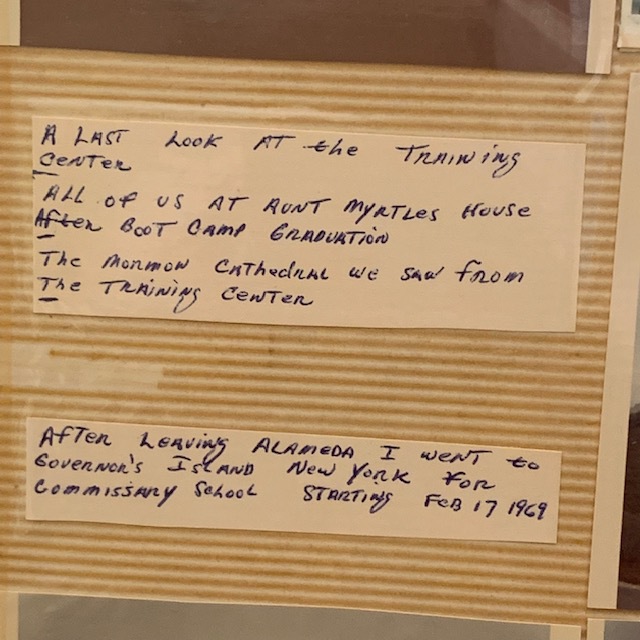 A LAST LOOK AT the TRAINING
CENTER
ALL OF US AT AUNT MYRTLES HOUSE
AFter BOOT CAMP GRADUATION
The MORMON CATHEDRAL WE SAW FROM
The TRAINING CENTER
AFTER LEAVING ALAMEDA I WENT to
GOVERNOR'S ISLAND NEW YORK FOR
COMMISSARY SCHOOL STARTING FEB 17 1969